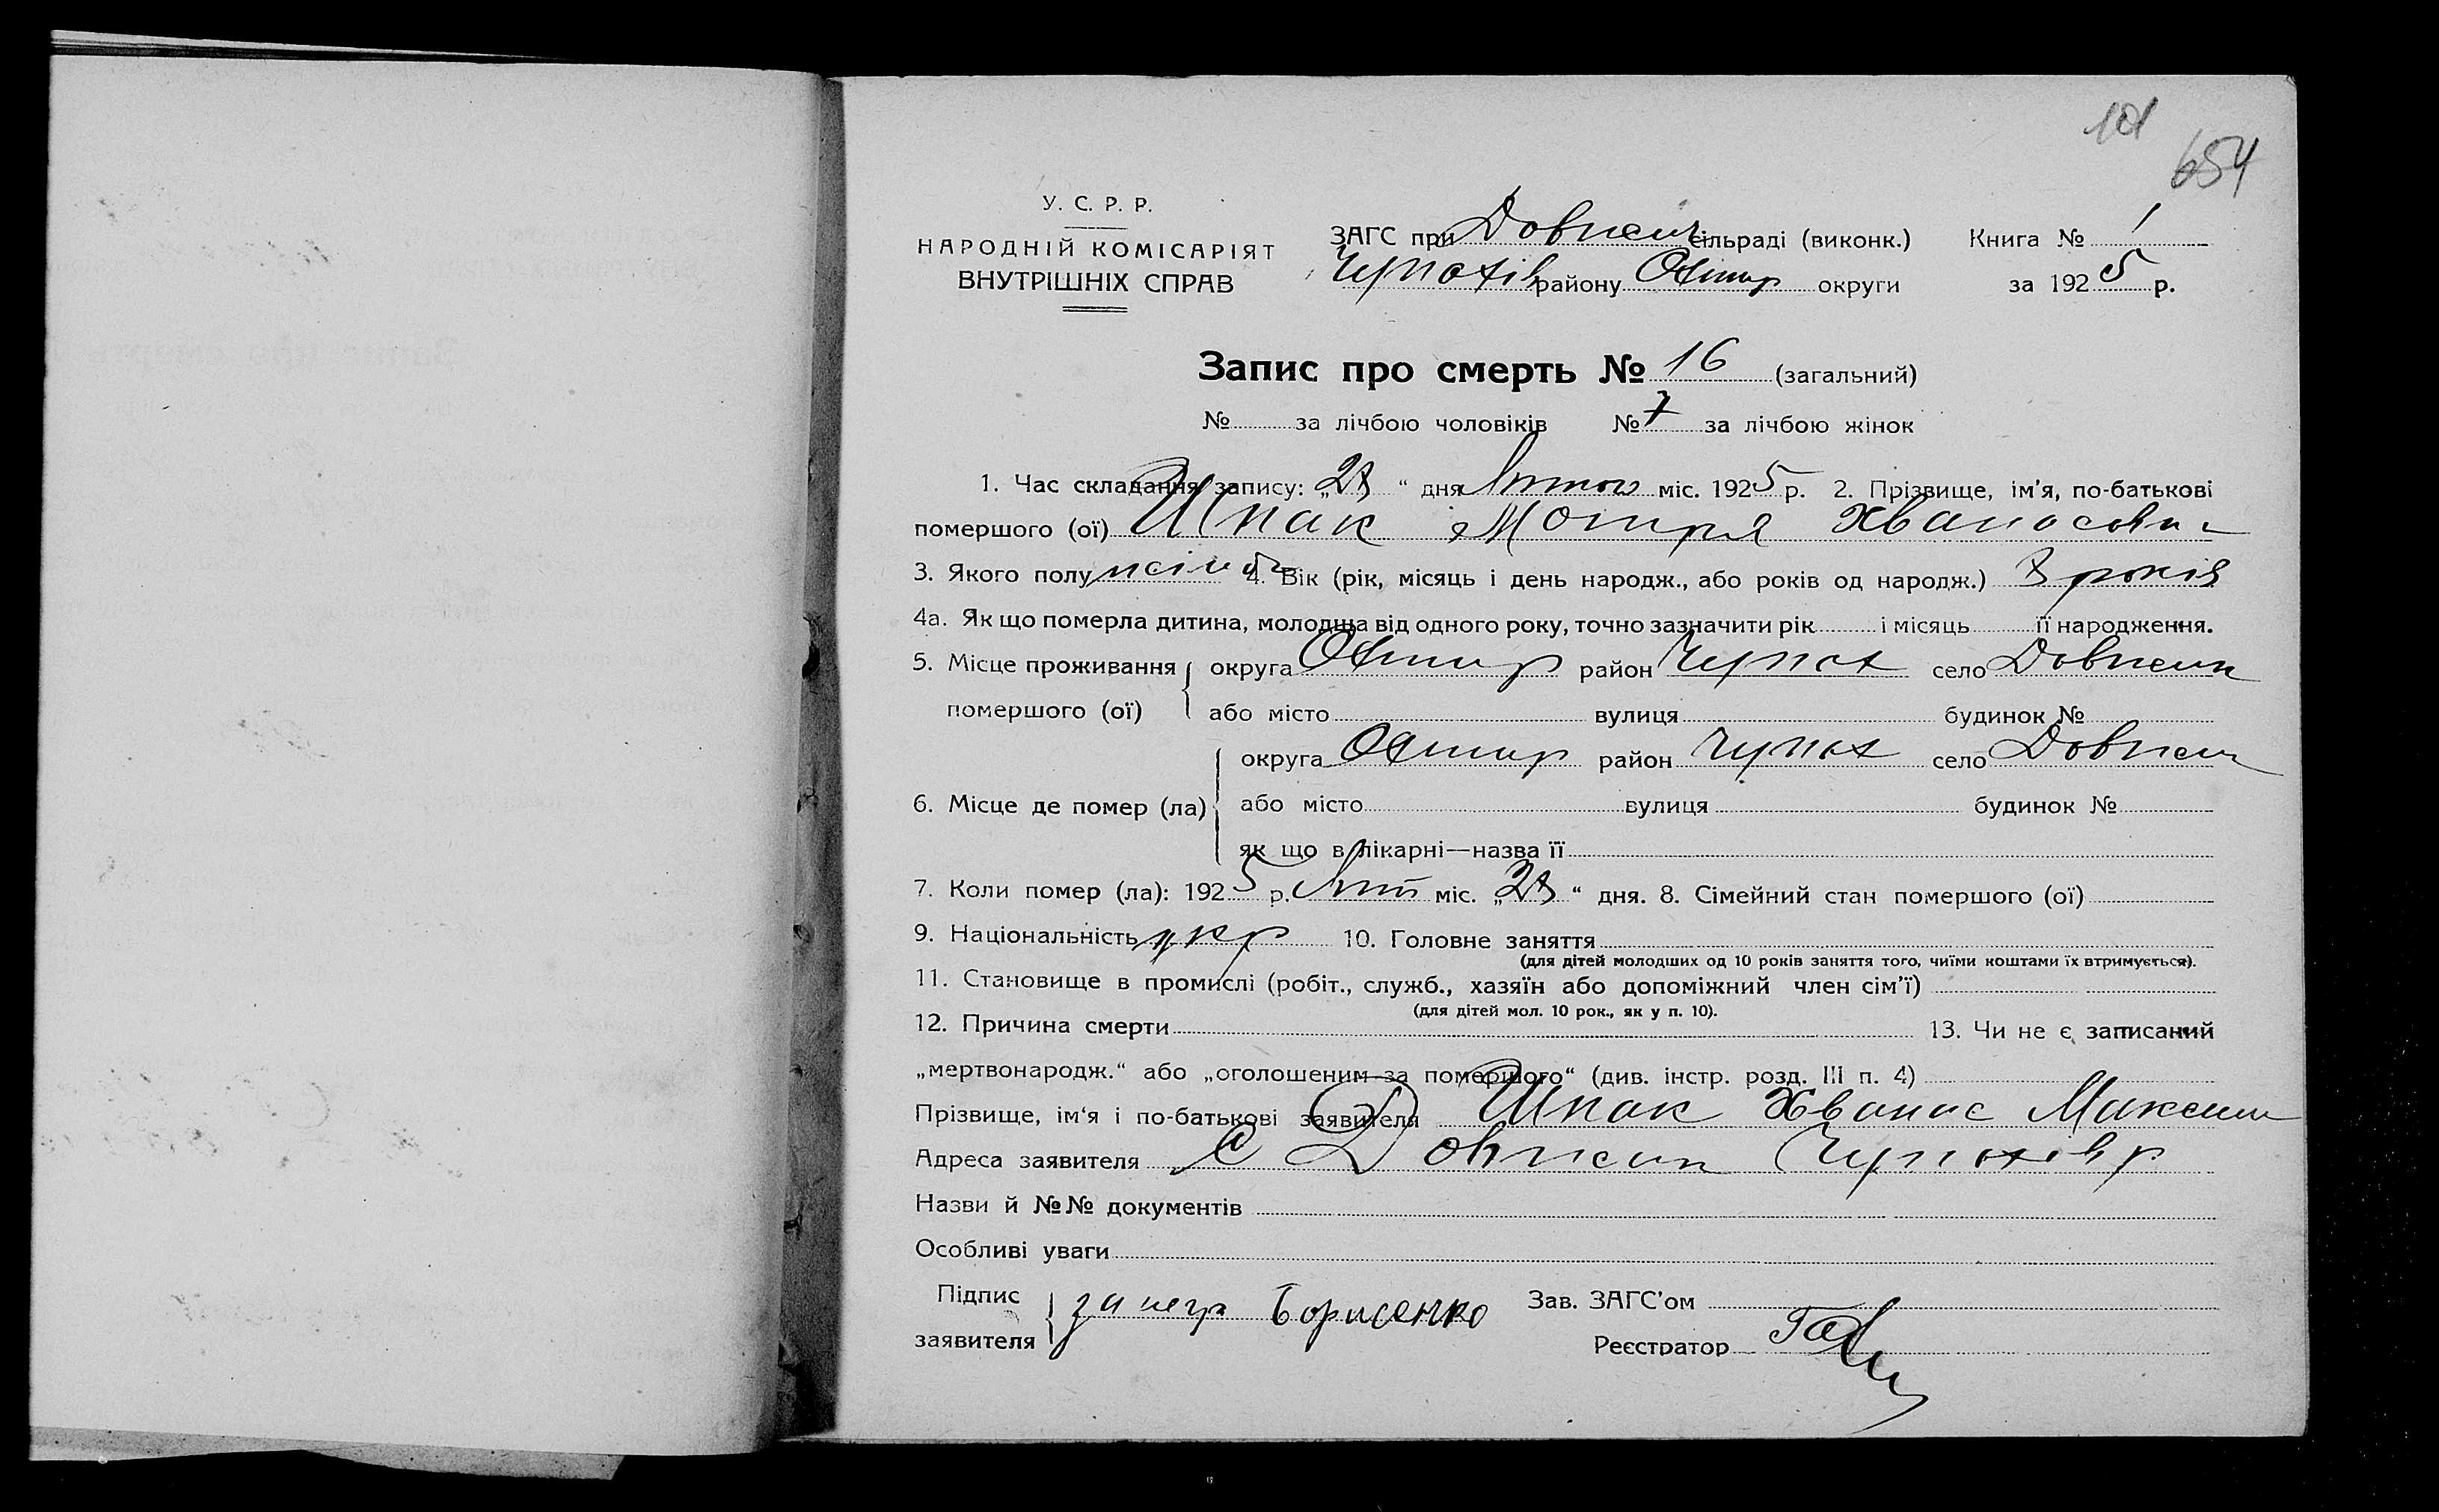 101
654
У. С. Р. Р.
НАРОДНІЙ КОМІСАРІЯТ
ВНУТРІШНІХ СПРАВ
ЗАГС при Довжен сільраді (виконк.) Книга № 1
Чупахів району Охтир округи за 1925 р.
Запис про смерть № 16 (загальний)
№ за лічбою чоловіків № 7 за лічбою жінок
1. Час складання запису: „28“ дня Лютого міс. 1925 р. 2. Прізвище, ім'я, по-батькові
помершого (ої) Шпак Мотря Хванасовна
3. Якого полу жіноч 4. Вік (рік, місяць і день народж., або років од народж.) 8 років
4а. Як що померла дитина, молодша від одного року, точно зазначити рік і місяць її народження.
5. Місце проживання округа Охтир район Чупах село
помершого (ої) або місто вулиця будинок №
округа Охтир район Чупах село
6. Місце де помер (ла) або місто вулиця будинок №
як що в лікарні—назва її
7. Коли помер (ла): 1925 р. Лют міс. „28“ дня. 8. Сімейний стан помершого (ої)
9. Національність укр 10. Головне заняття
(для дітей молодших од 10 років заняття того, чиїми коштами їх втримується).
11. Становище в промислі (робіт., служб., хазяїн або допоміжний член сім'ї)
(для дітей мол. 10 рок., як у п. 10).
12. Причина смерти 13. Чи не є записаний
„мертвонародж.“ або „оголошеним за помершого“ (див. інстр. розд. III п. 4)
Прізвище, ім'я і по-батькові заявителя Шпак Хванас Максим
Адреса заявителя С Чупахів р
Назви й №№ документів
Особливі уваги
Підпис
заявителя за негр Борисенко Зав. ЗАГС'ом
Реєстратор